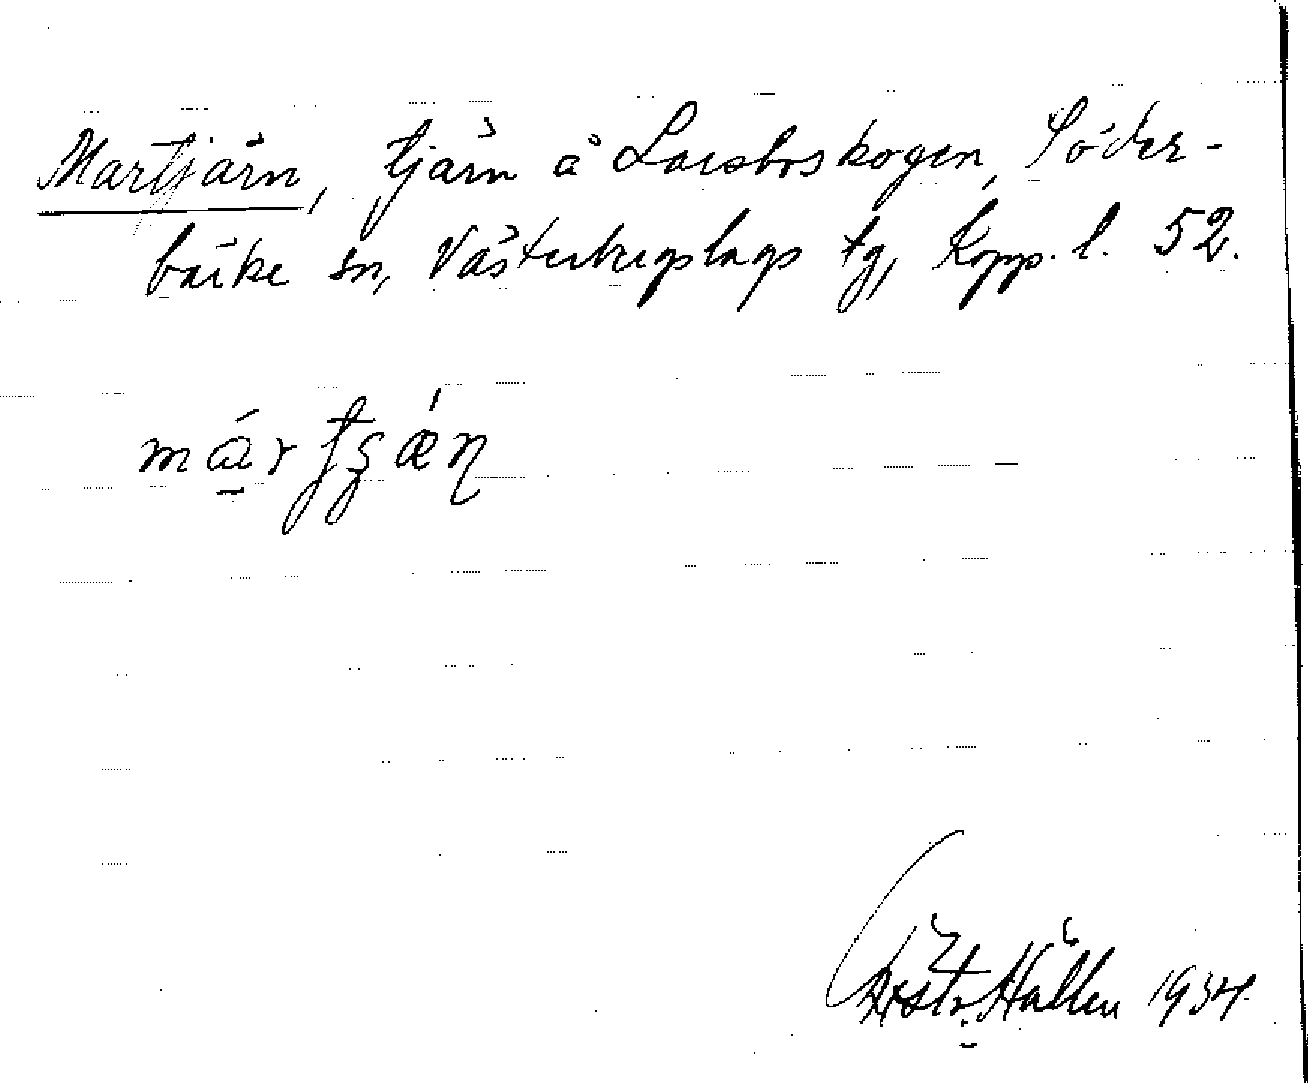 Martjärn, tjärn å Larsboskogen, Söder-
bärke sn, Västerbergslags tg, Kopp. l. 52.
Hallén 1934.